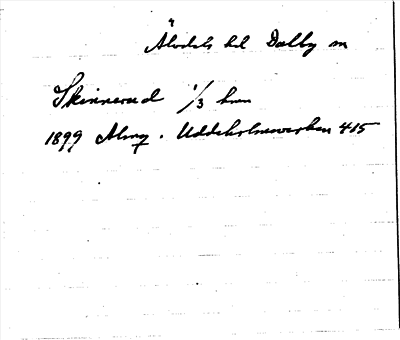 Älvdals hd Dalby sn
Skinnerud 1/3 hmn
1899 Almq. Uddeholmsverken 415